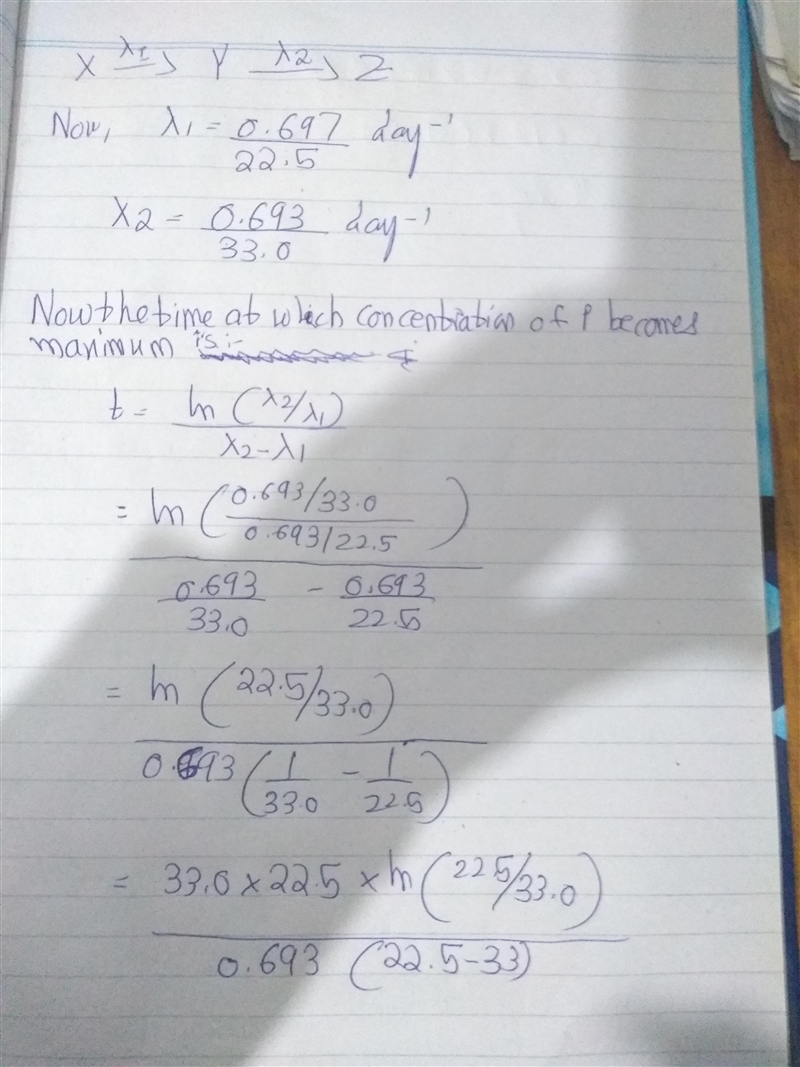 X λ1→ Y λ2→ Z
Now, λ1 = 0.697/22.5 day⁻¹
λ2 = 0.693/33.0 day⁻¹
Now the time at which concentration of P becomes
maximum is:-
t = ln (λ2/λ1) / λ2-λ1
= ln (0.693/33.0 / 0.693/22.5) / 0.693/33.0 - 0.693/22.5
= ln (22.5/33.0) / 0.693 (1/33.0 - 1/22.5)
= 33.0 × 22.5 × ln (22.5/33.0) / 0.693 (22.5-33)